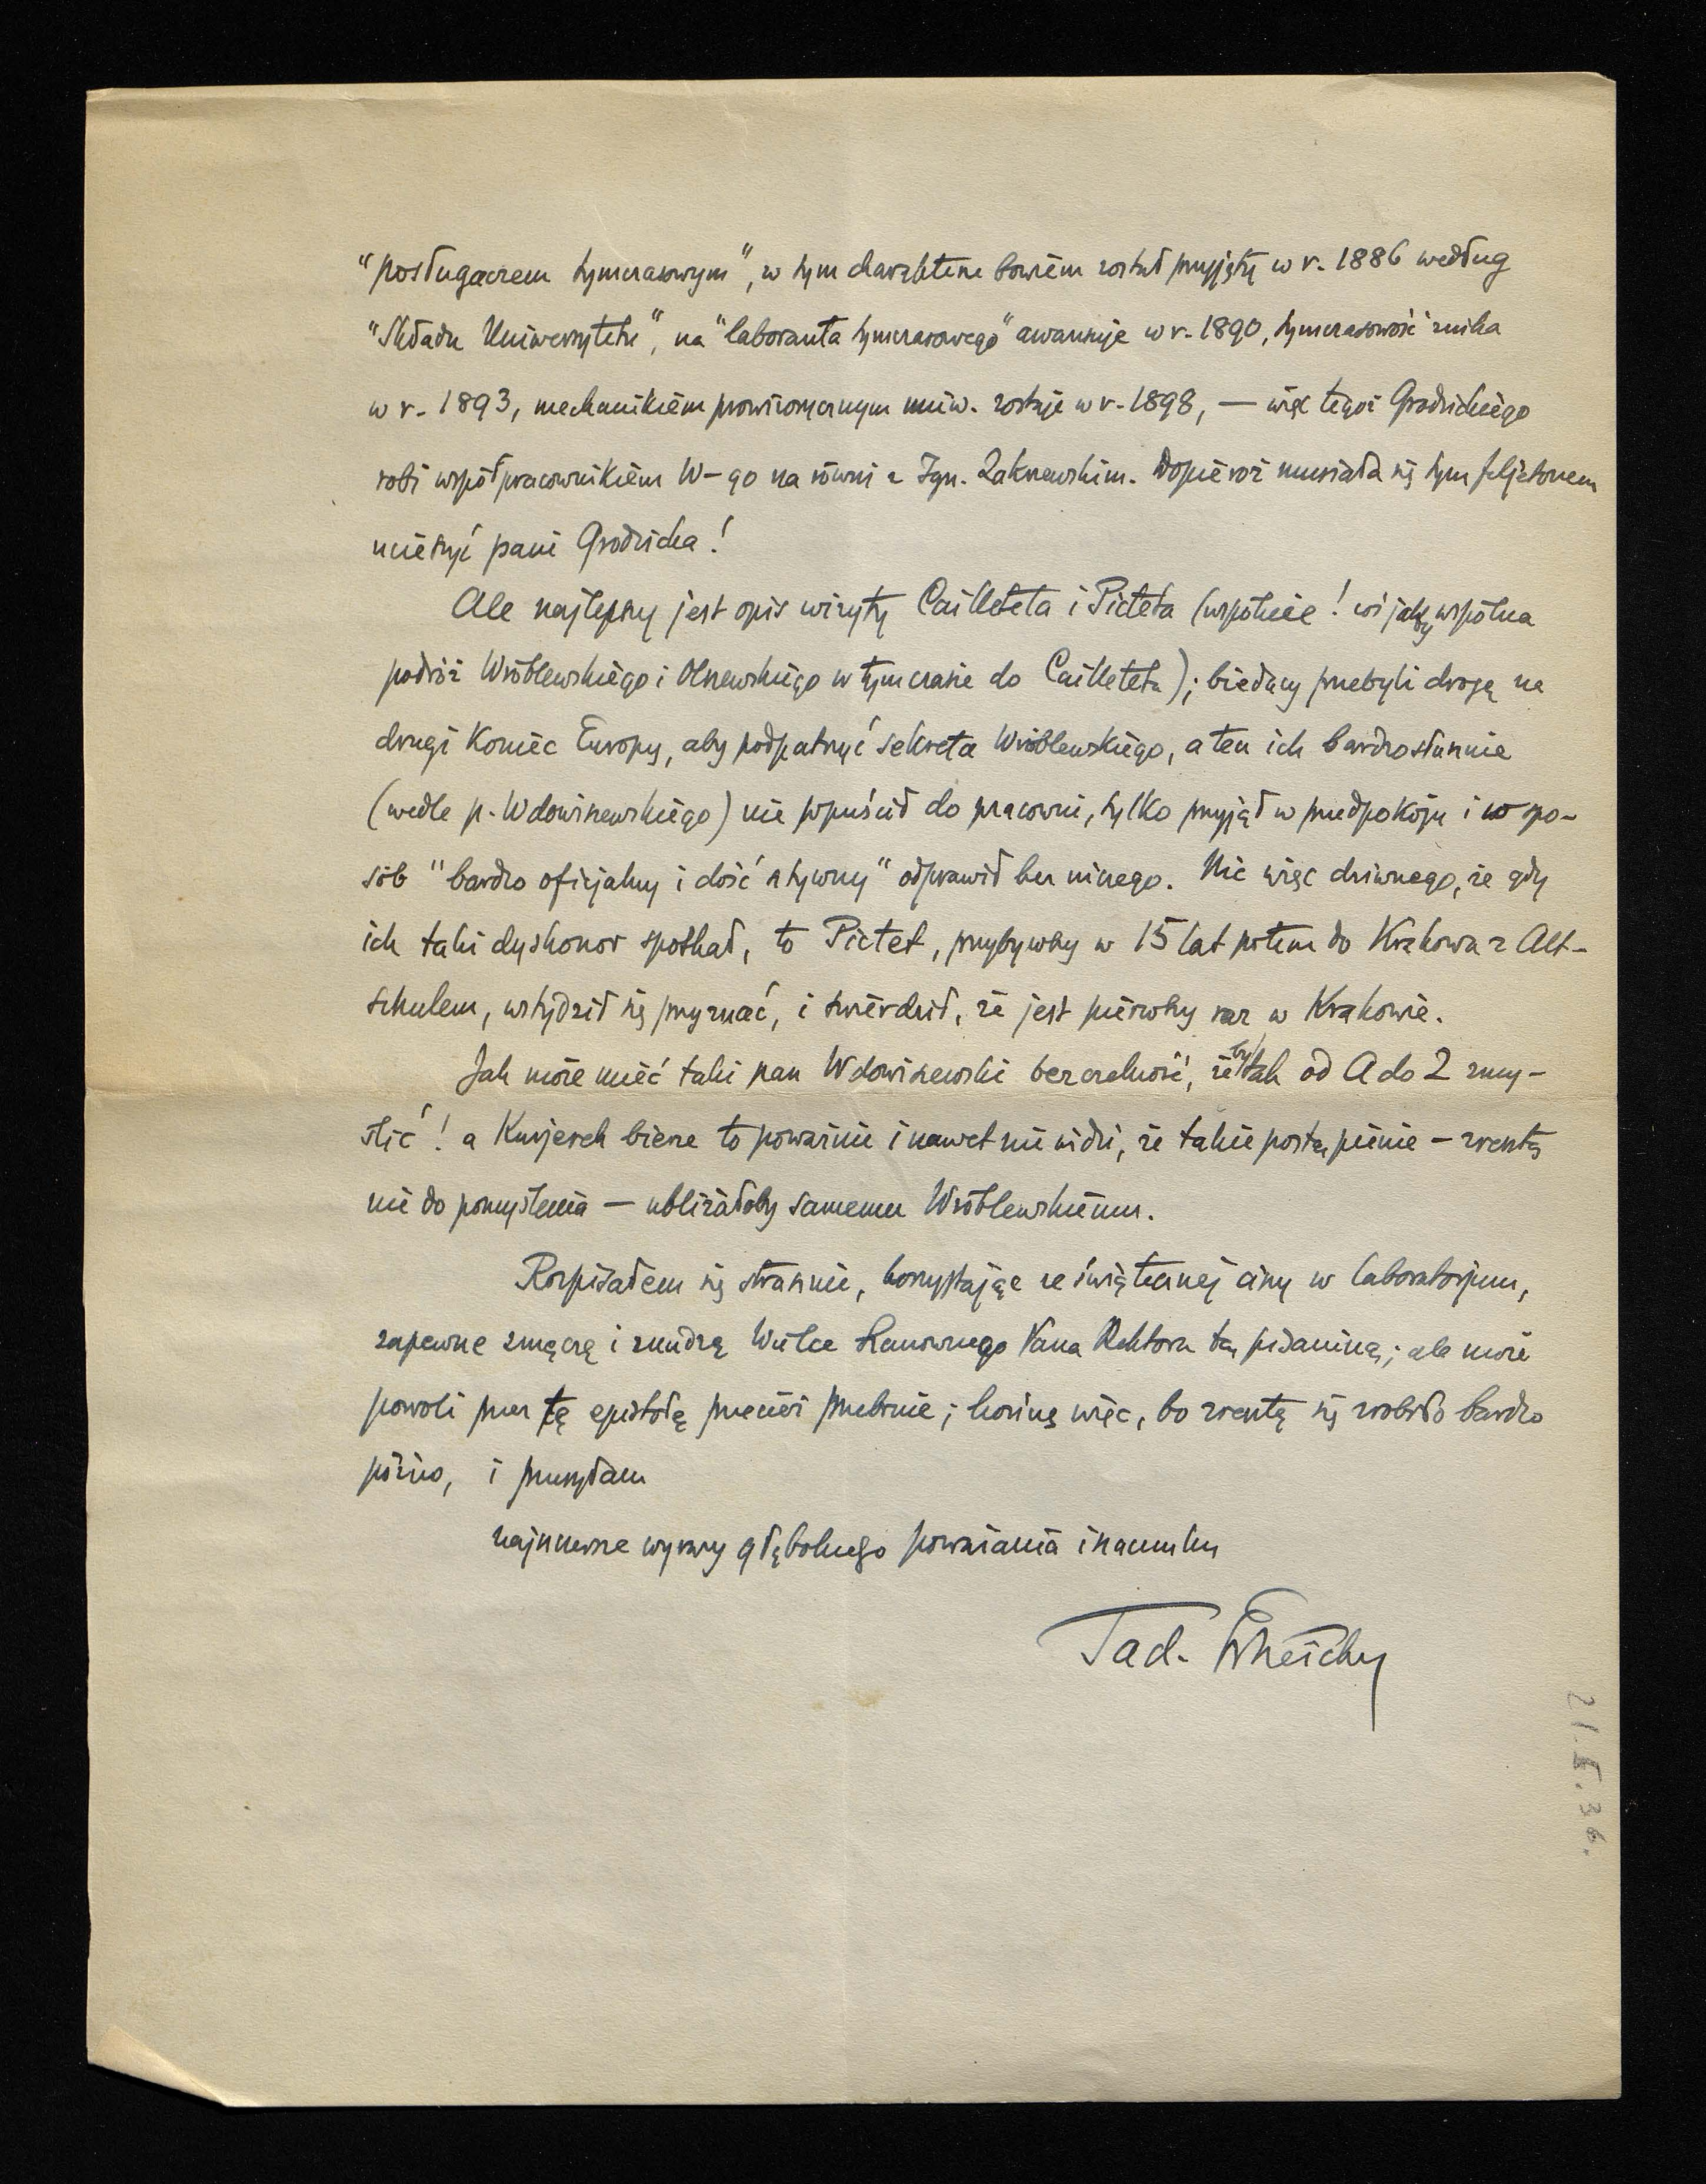 "posługaczem tymczasowym", w tym charakterze bowiem został przyjęty w r. 1886 według
"Składu Uniwersytetu", na "laboranta tymczasowego" awansuje w r. 1890, tymczasowość znika
w r. 1893, mechanikiem prowizorycznym uniw. zostaje w r. 1898, — więc tegoż Grodzickiego
robi współpracownikiem W-go na równi z Ign. Zakrzewskim. Dopieroż musiała się tym feljetonem
ucieszyć pani Grodzicka!
Ale najlepszy jest opis wizyty Cailleteta i Picteta (wspólnie! coś jakby wspólna
podróż Wróblewskiego i Olszewskiego w tym czasie do Cailleteta); biedacy przebyli drogę na
drugi koniec Europy, aby podpatrzyć sekreta Wróblewskiego, a ten ich bardzo słusznie
(wedle p. Wdowiszewskiego) nie wpuścił do pracowni, tylko przyjął w przedpokoju i w spo-
sób "bardzo oficjalny i dość sztywny" odprawił bez niczego. Nic więc dziwnego, że gdy
ich taki dyshonor spotkał, to Pictet, przybywszy w 15 lat potem do Krakowa z Alt-
schulem, wstydził się przyznać, i twierdził, że jest pierwszy raz w Krakowie.
Jak może mieć taki pan Wdowiszewski bezczelność, żeby tak od A do Z zmy-
ślić! a Kurjerek bierze to poważnie i nawet nie widzi, że takie postąpienie — zresztą
nie do pomyślenia — ubliżałoby samemu Wróblewskiemu.
Rozpisałem się strasznie, korzystając ze świątecznej ciszy w laboratorjum,
zapewne zmęczę i znudzę Wielce Szanownego Pana Rektora tą pisaniną; ale może
powoli przez tę epistołę przecież przebrnie; kończę więc, bo zresztą się zrobiło bardzo
późno, i przesyłam
najszczersze wyrazy głębokiego poważania i szacunku
Tad. Estreicher
21.5.36.